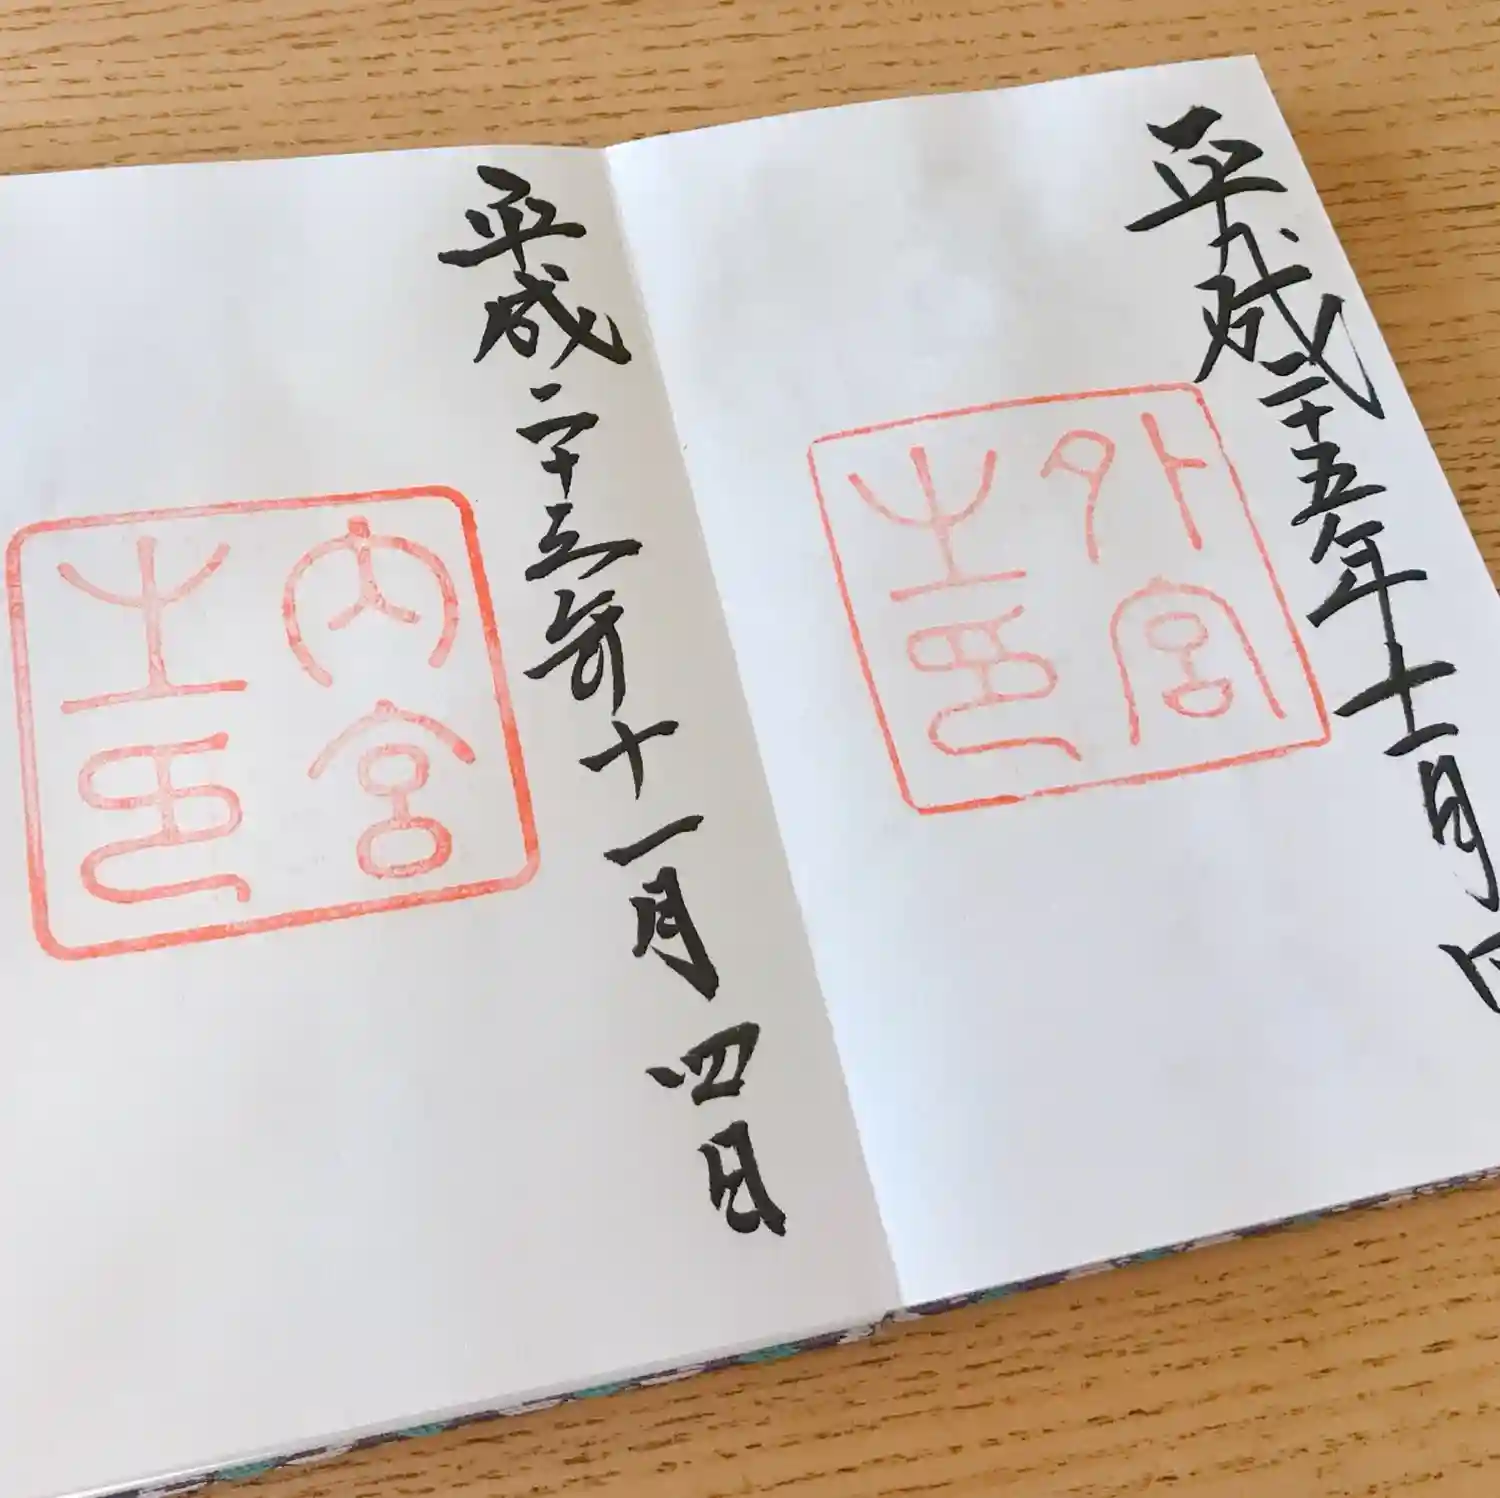 平成二十五年十一月四
外宮之印
平成二十五年十一月四日
内宮之印